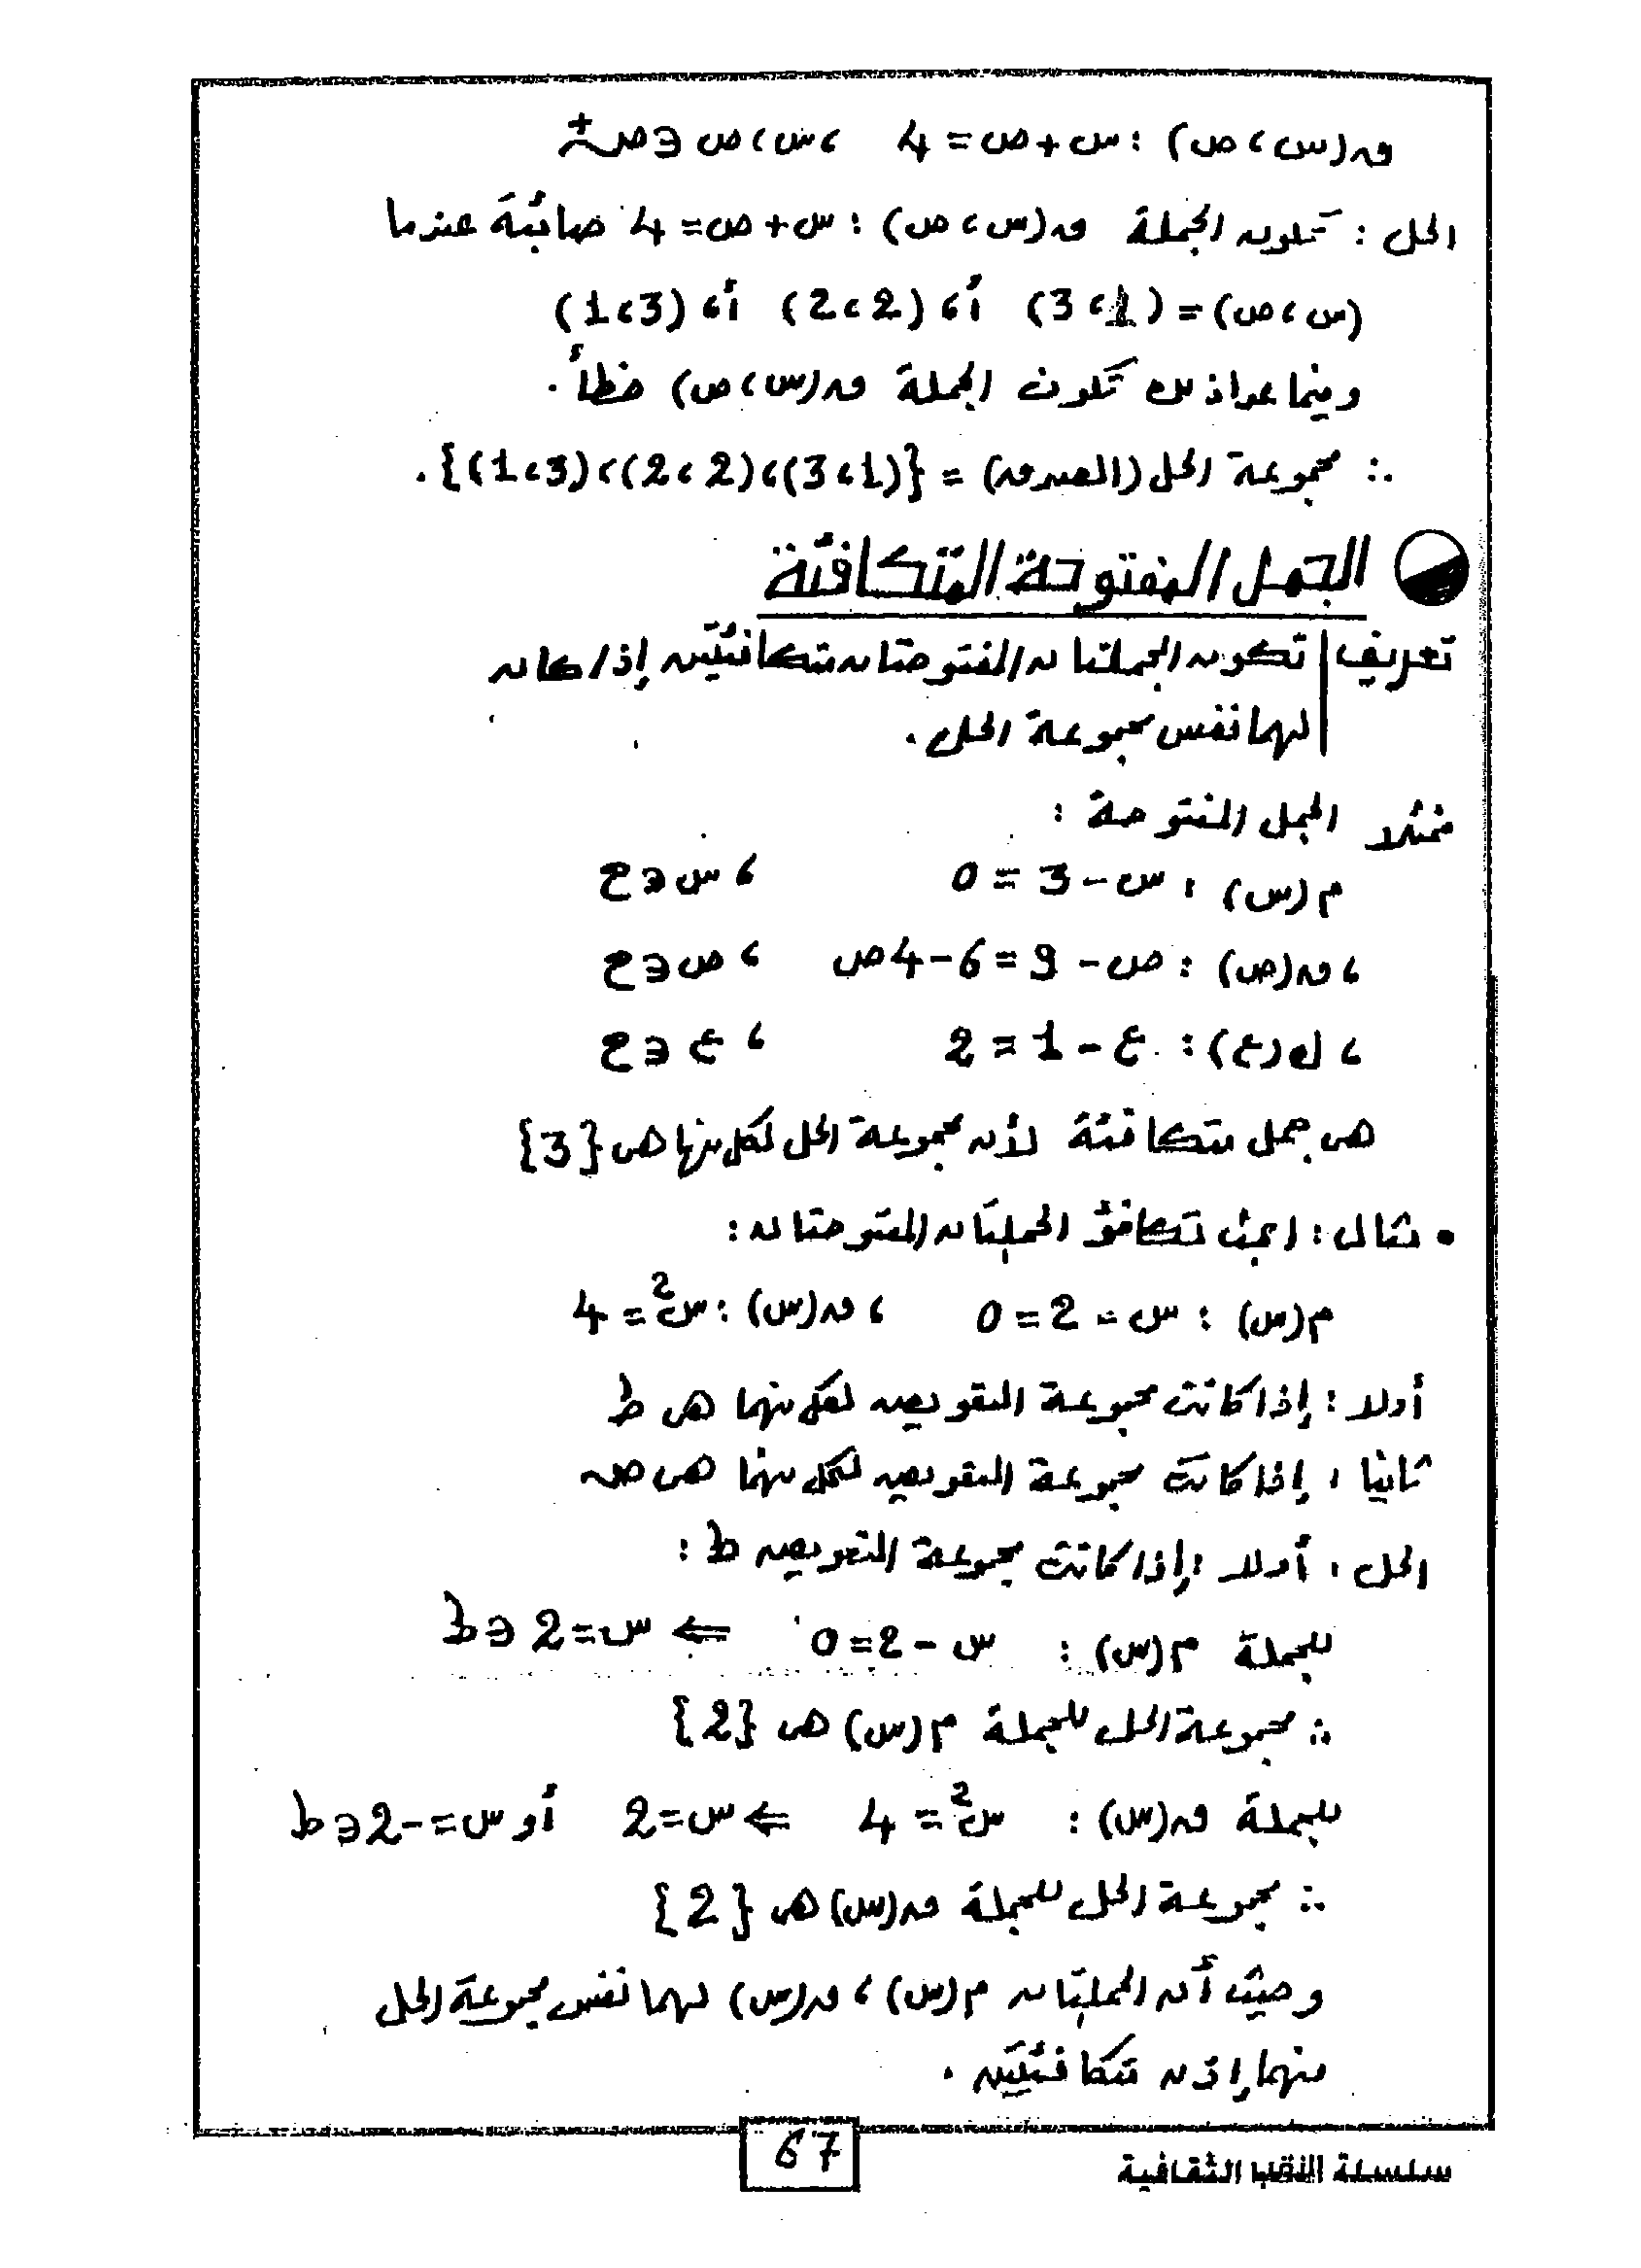 ن(س ، ص) : س + ص = 4 ، س ، ص ∈ ص+
الحل : تكون الجملة ن(س ، ص) : س + ص = 4 صائبة عندما
(س ، ص) = (1 ، 3) أ، (2 ، 2) أ، (3 ، 1)
وفيما عدا ذلك تكون الجملة ن(س ، ص) خطأ .
∴ مجموعة الحل (الصدق) = {(1 ، 3) ، (2 ، 2) ، (3 ، 1)} .
الجمل المفتوحة المتكافئة
تعريف | تكون الجملتان المفتوحتان متكافئتين إذا كان
لهما نفس مجموعة الحل .
فمثلا الجمل المفتوحة :
م(س) : س - 3 = 0 ، س ∈ ح
، ن(ص) : ص - 9 = 6 - 4ص ، ص ∈ ح
، ل(ع) : ع - 1 = 2 ، ع ∈ ح
هى جمل متكافئة لأن مجموعة الحل لكل منها هى {3}
• مثال : ابحث تكافؤ الجملتان المفتوحتان :
م(س) : س - 2 = 0 ، ن(س) : س² = 4
أولا : إذا كانت مجموعة التعويض لكل منهما هى ط
ثانيا : إذا كانت مجموعة التعويض لكل منهما هى ص
الحل : أولا : إذا كانت مجموعة التعويض ط :
للجملة م(س) : س - 2 = 0 ⇐ س = 2 ∈ ط
∴ مجموعة الحل للجملة م(س) هى {2}
للجملة ن(س) : س² = 4 ⇐ س = 2 أو س = -2 ∈ ط
∴ مجموعة الحل للجملة ن(س) هى {2}
وحيث أن الجملتان م(س) ، ن(س) لهما نفس مجموعة الحل
منهما إذن متكافئتين .
67
سلسلة النقيب الثقافية